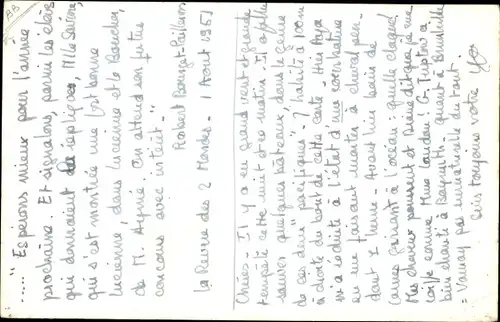 BB
....." Espérons mieux pour l'année
prochaine. Et signalons, parmi les élèves
qui donnaient la réplique, Mlle
qui s'est montrée une fort bonne
Lucienne, dans Lucienne et le Boucher,
de M. Aymé. On attend son futur
concours avec intérêt."
Robert Bourget-Pailleron
La Revue des 2 Mondes - 1 Août 1951
Chéries - Il y a eu grand vent et grande
tempête cette nuit et ce matin. Il a fallu
sauver quelques bateaux, dans le genre
de ces deux "pacifiques" - J'habite à 100 m
à droite du bord de cette carte. Hier Anya
m'a réduite à l'état d'une combattante
en me faisant monter à cheval pen-
dant 1 heure - Avant hier bain de
l'océan : quelle claque!
Mes cheveux poussent et Pierre dit que je me
coiffe comme Mme Loudou! G. Tupton a
bien chanté à Bayreuth - quant à
= Varnay pas du tout.
Suis toujours votre